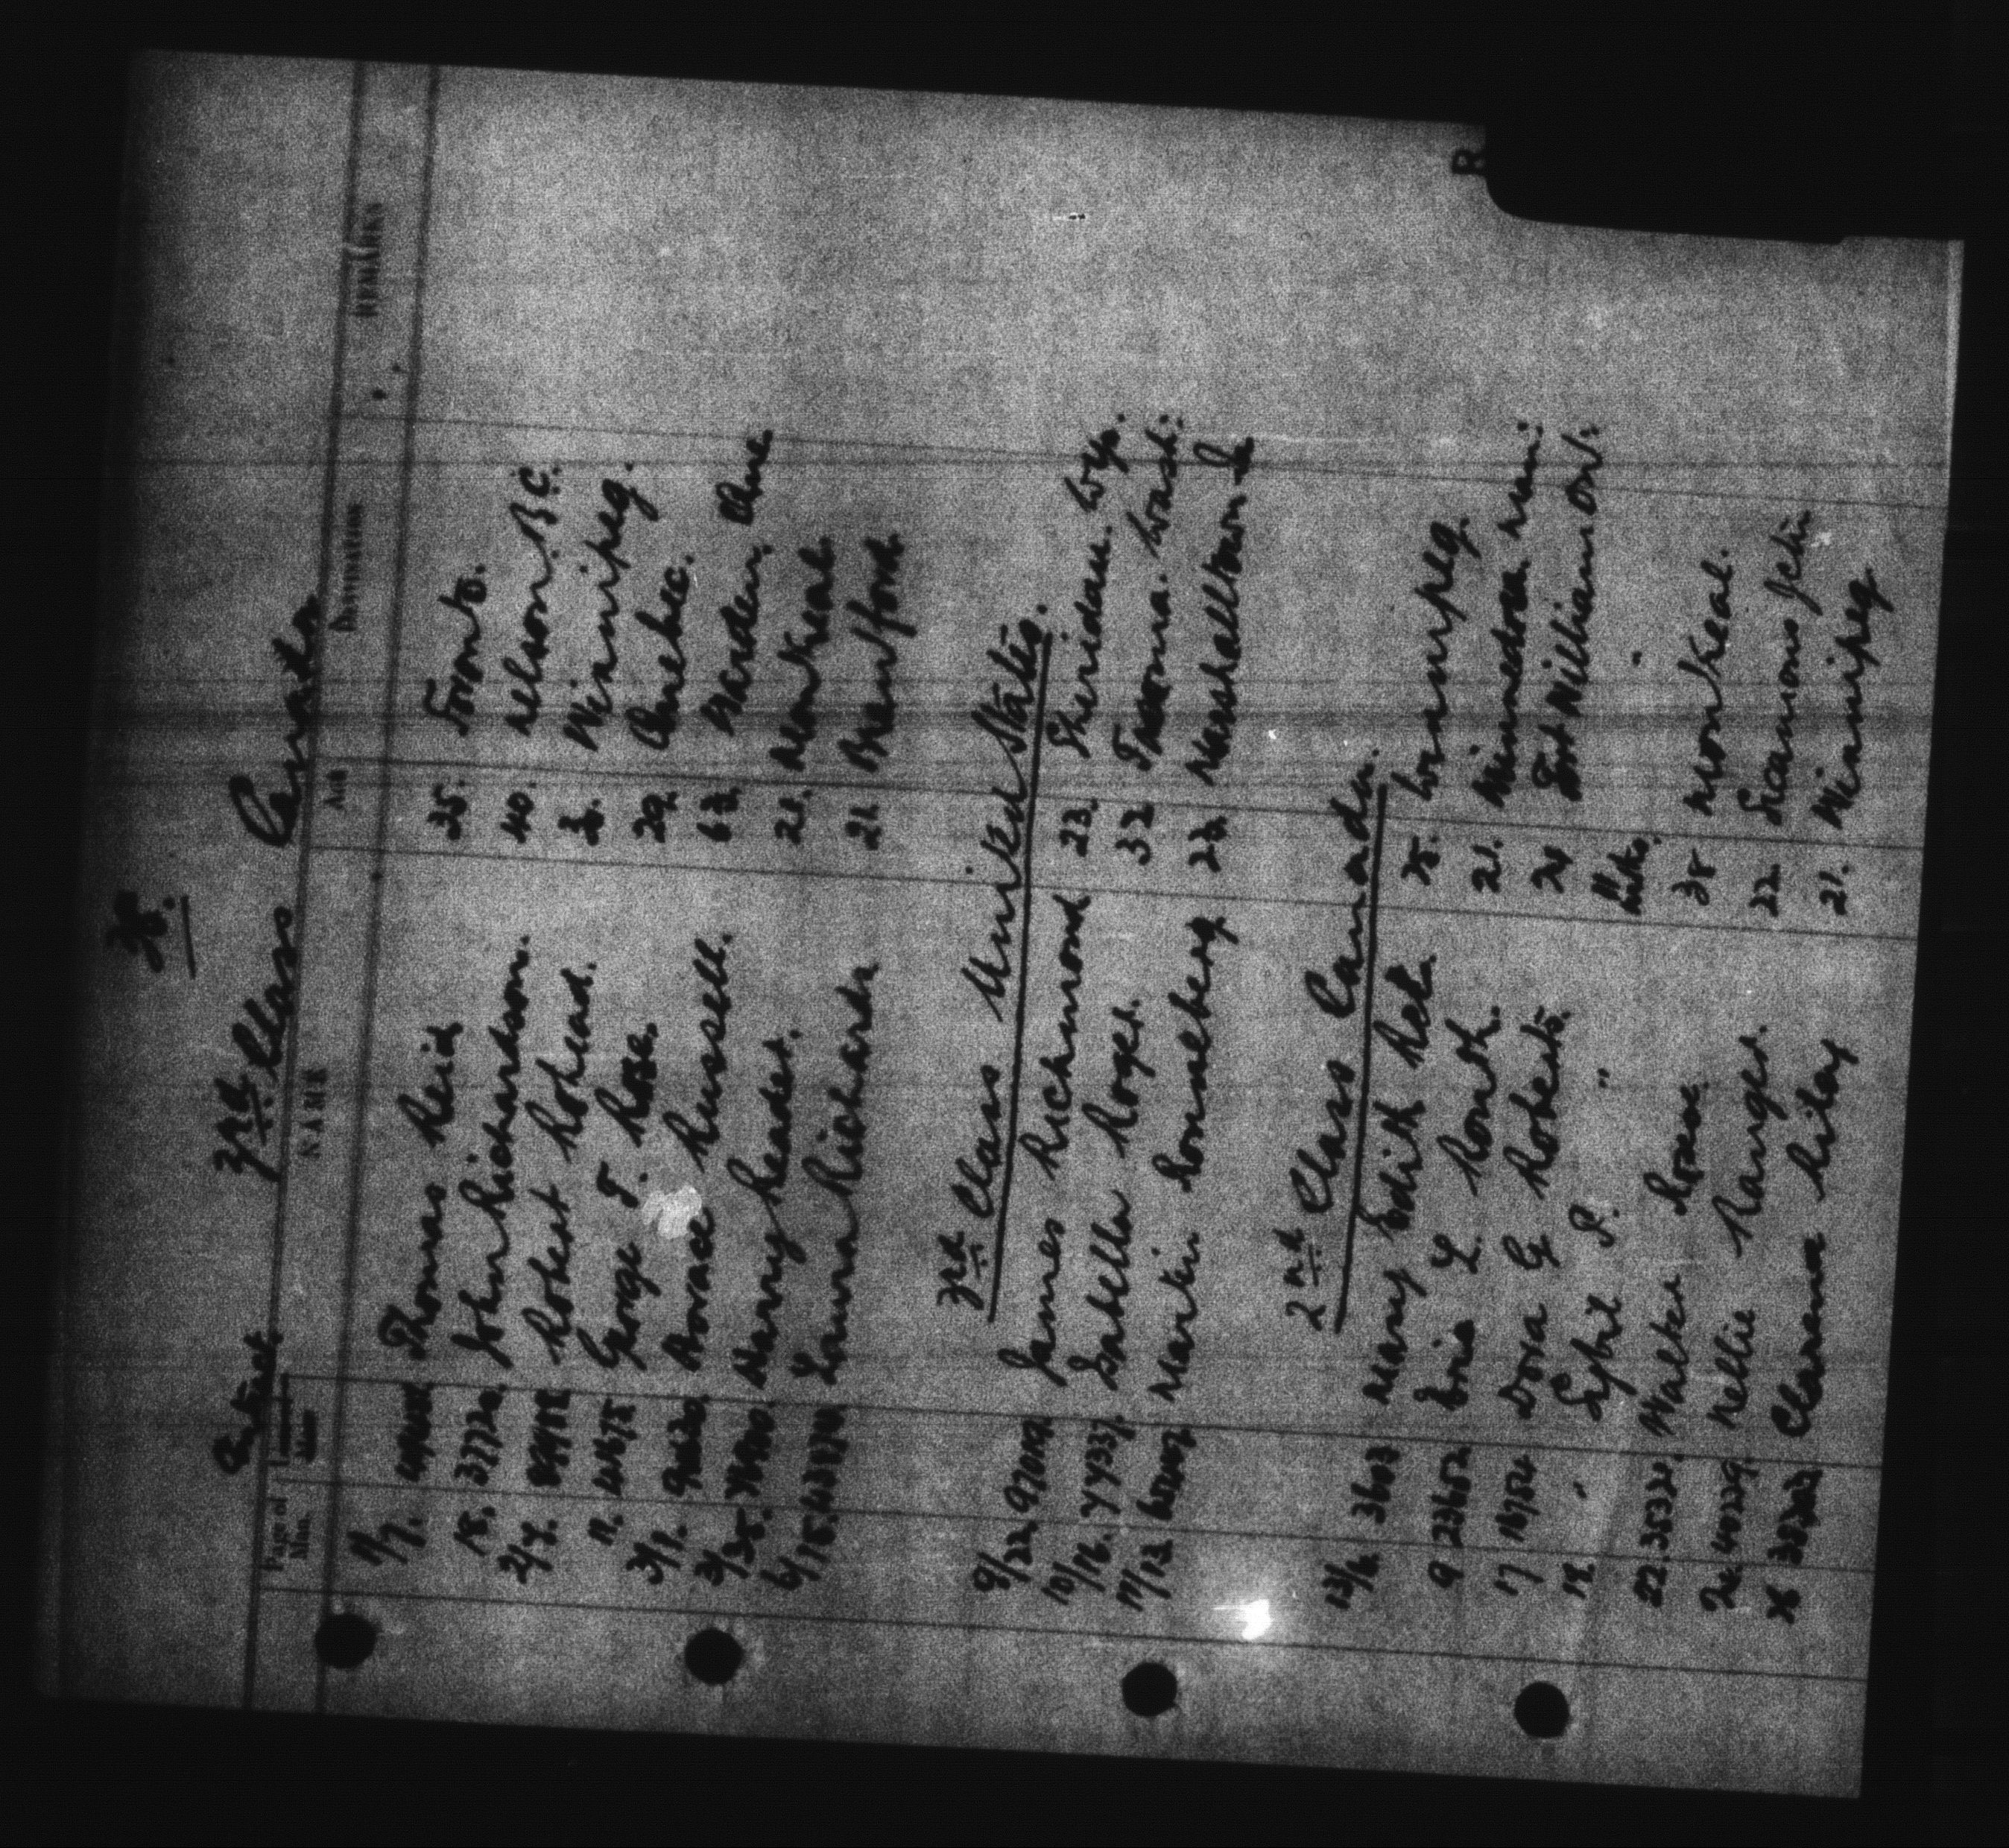 36.
3rd Class Canada
Page of Man. NAME AGE DESTINATION REMARKS
1/7. Thomas Reid 35. Toronto.
18. 37720 John Richardson. 40. Nelson. B.C.
2/4. Robert Rohead. Winnipeg.
11. George T. Rose. 29. Quebec.
3/1. Horace Russell. 63. Marden.
3/35. Harry Reader. 21. Montreal
6/15. Laura Richards 21 Brantford.
3rd Class United States.
9/22. 97012 James Richmond 23. Sheridan. Wyo.
10/16. 77337 Isabella Roger. 32 Tacoma. Wash.
11/13 Martin Ronneberg 23 Marshalltown Ia
2nd Class Canada.
13/6. 3603 Mary Edith Rek. 25. Winnipeg.
9 23652 L. Routh. 21. Minnedosa Man.
17 18954 Dora G Roberts. 24 Fort William Ont.
18. " Sybil P. " "
22. 35324 Walter Rowe 38 Montreal.
40229 Nellie Ranger. 22. Sicamous Jctn
38303 Clarence Riley 21. Winnipeg
R